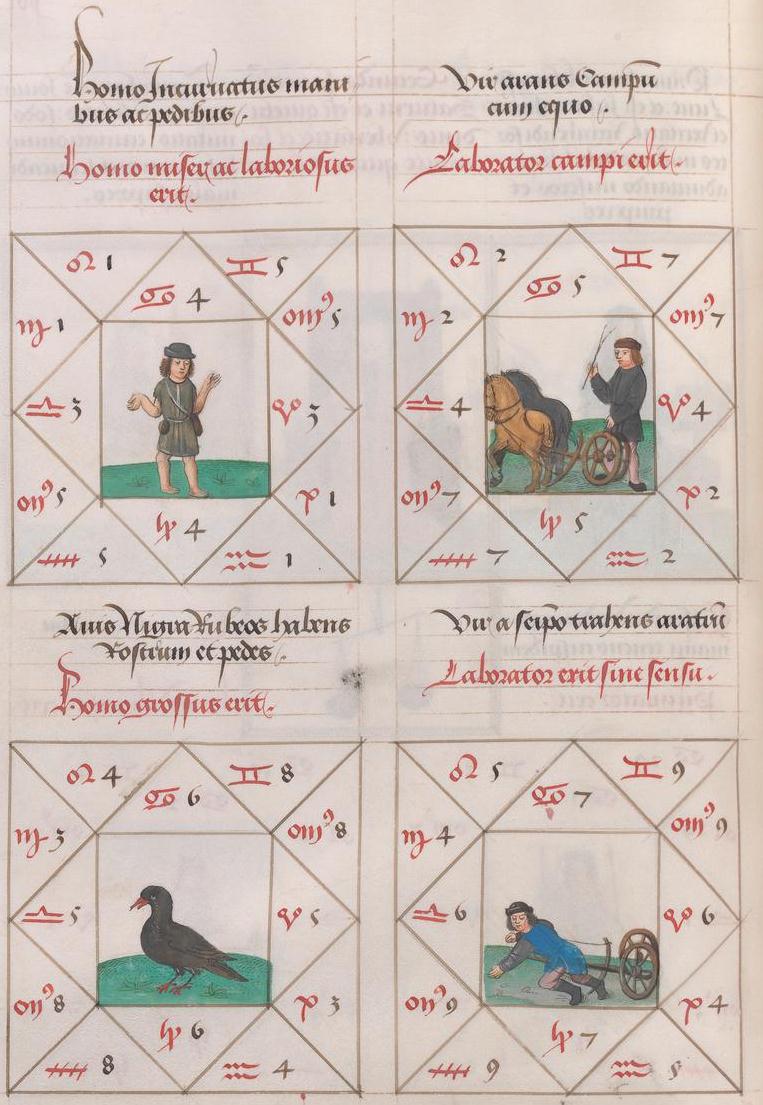 Homo Incuruatus mani
bus ac pedibus.
Homo miser ac laboriosus
erit.
Vir arans Campū
cum equo.
Laborator campi erit.
♌ 1
♊ 5
♋ 4
♍ 1
5
♎ 3
♈ 3
5
1
♑ 4
5
♒ 1
♌ 2
♊ 7
♋ 5
♍ 2
7
♎ 4
♈ 4
7
2
♑ 5
7
♒ 2
Auis Nigra Rubeos habens
Rostrum et pedes.
Homo grossus erit.
Vir a seip̄o trahens aratrū
Laborator erit sine sensu.
♌ 4
♊ 8
♋ 6
♍ 3
8
♎ 5
♈ 5
8
3
♑ 6
8
♒ 4
♌ 5
♊ 9
♋ 7
♍ 4
9
♎ 6
♈ 6
9
4
♑ 7
9
♒ 5